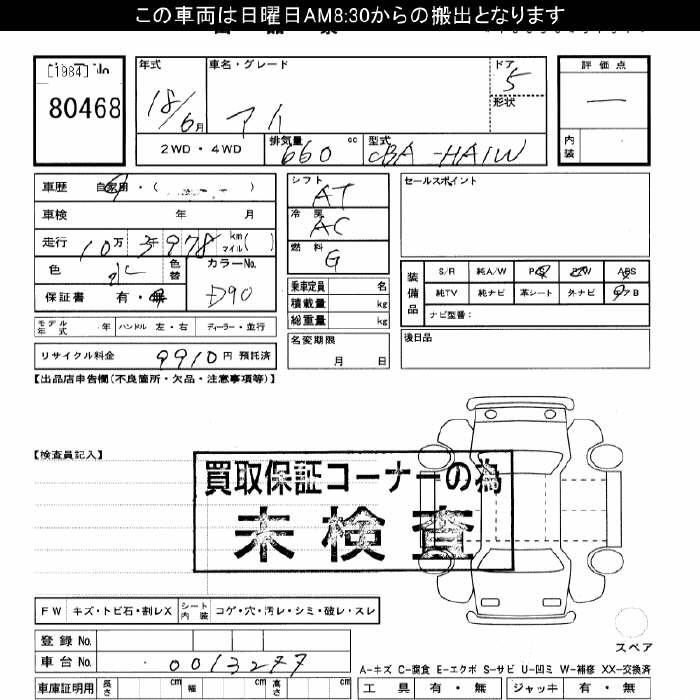 この車両は日曜日AM8:30からの搬出となります
[1984]
80468
年式
18/6月
車名・グレード
アイ
ドア
5
形状
2WD・4WD
排気量
660 cc
型式
CBA-HA1W
評価点
―
内装
車歴 自家用・( )
車検 年 月
走行 10万3千978 km マイル( )
色 水
色替
カラーNo.
D90
保証書 有・無
シフト
AT
冷房
AC
燃料
G
乗車定員 名
積載量 kg
総重量 kg
名変期限
月 日
セールスポイント
装備品
S/R 純A/W P/S P/W ABS
純TV 純ナビ 革シート 外ナビ エアB
ナビ型番:
後日品
モデル年式 年 ハンドル 左・右 ディーラー・並行
リサイクル料金 9910円 預託済
【出品店申告欄(不良箇所・欠品・注意事項等)】
【検査員記入】
買取保証コーナーの為
未検査
FW キズ・トビ石・割レX シート内装 コゲ・穴・汚レ・シミ・破レ・スレ
登録No.
車台No. 0013277
スペア
A-キズ C-腐食 E-エクボ S-サビ U-凹ミ W-補修 XX-交換済
車庫証明用 長さ cm 幅 cm 高さ cm
工具 有・無 ジャッキ 有・無